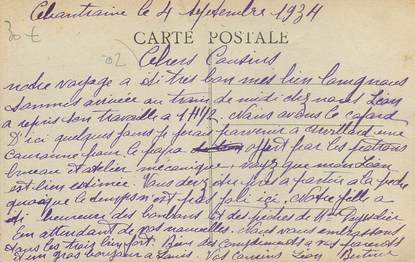 Chantraine le 4 Septembre 1934
30 €
02
CARTE POSTALE
Chers Cousins
notre voyage a été tres bon mes bien long nous
sommes arrivée au train de midi chez nous Léon
a repris son travaille a 1H1/2. Nous avons le cafard
D'ici quelques jours je ferais parvenir a une
couronne pour le papa offert par les patrons
bureau et atelier mecanique voyez que mon Léon
est bien estimée. Vous devez etre pres a partir a la peche
quoique le temps n'est pas joli ici. Notre fille a
été heureuse des bonbons et des peches de Mme
En attendant de vos nouvelles. Nous vous embrassons
tous les trois bien fort. Bien des compliments a vos parents
et un gros bonjour a Louis. Vos cousins Léon Berthe